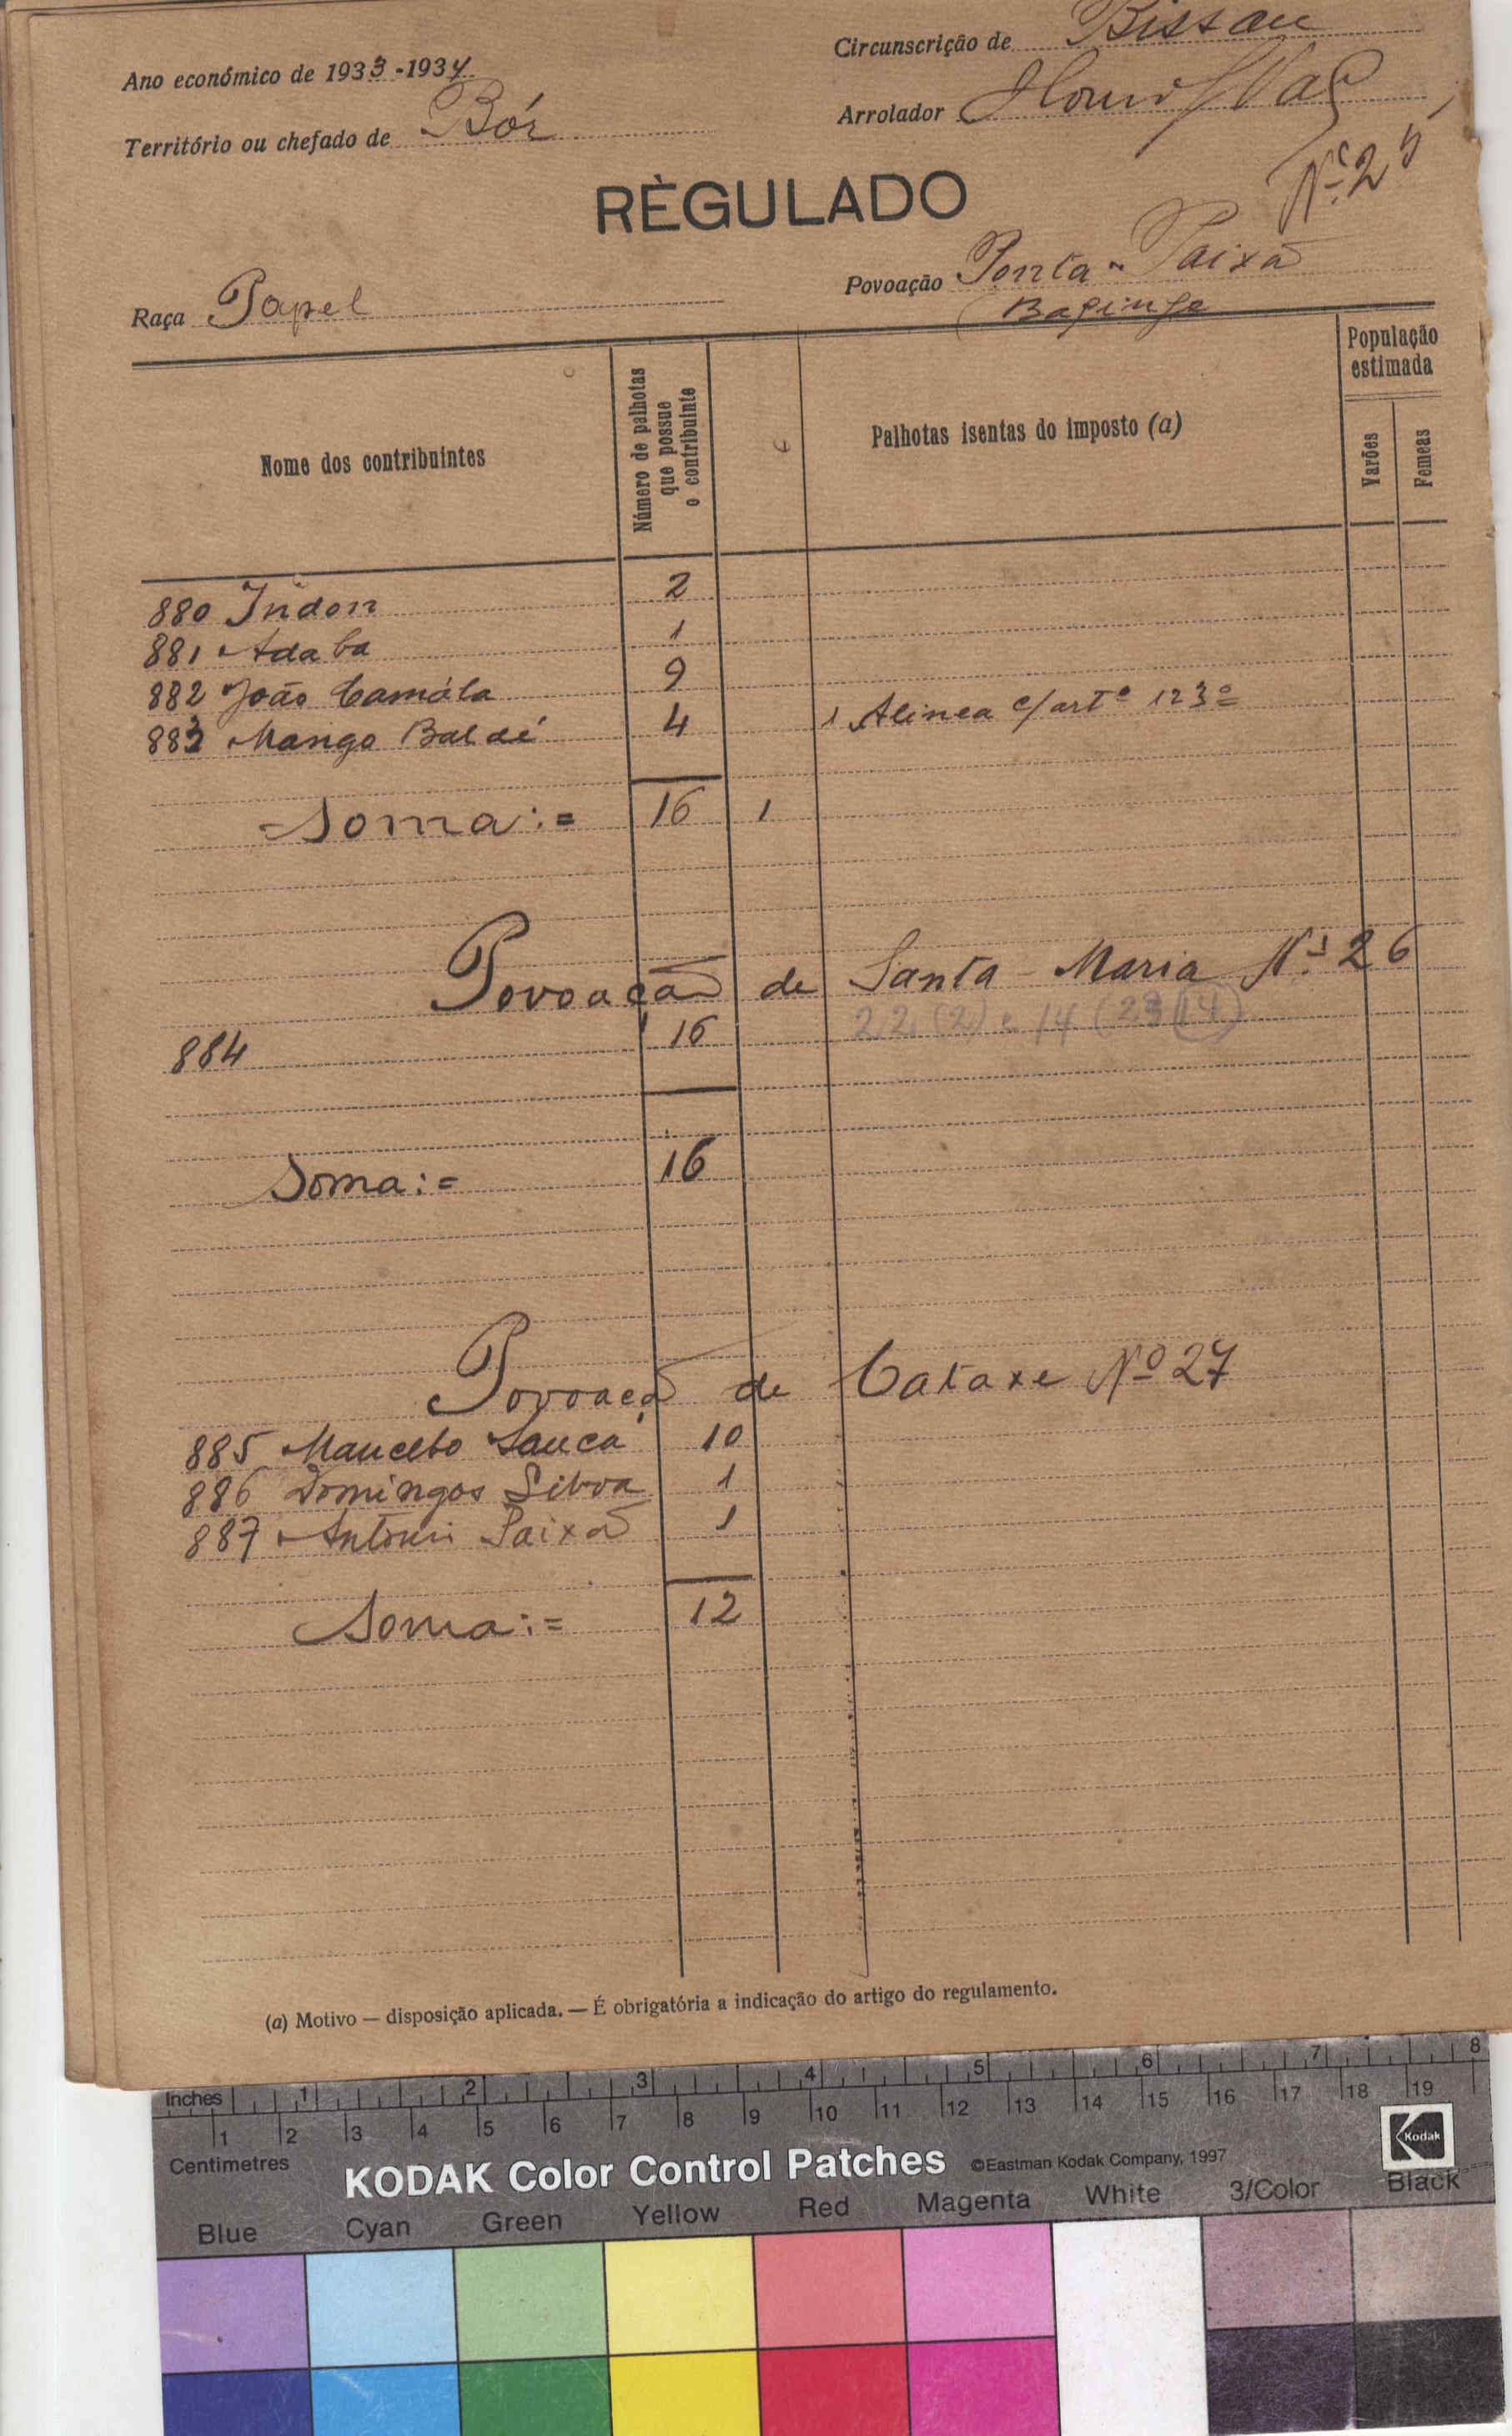 Ano económico de 1933-1934
Circunscrição de Bissau
Território ou chefado de Bór
Arrolador
RÈGULADO
Nº 25
Raça Papel
Povoação Ponta - Paixão
Nome dos contribuintes
Número de palhotas que possue o contribuinte
Palhotas isentas do imposto (a)
População estimada
Varões
Femeas
880 Indon 2
881 Adaba 1
882 João Camála 9
883 Mango Baldé 4 1 Alinea c/artº 123º
Soma:= 16 1
Povoação de Santa - Maria Nº 26
884 16 22 (2) e 14
Soma:= 16
Povoação de Cataxe Nº 27
885 Mancebo Sauca 10
886 Domingos Silva 1
887 Antonio Paixão 1
Soma:= 12
(a) Motivo — disposição aplicada. — É obrigatória a indicação do artigo do regulamento.
Inches 1 2 3 4 5 6 7 8
1 2 3 4 5 6 7 8 9 10 11 12 13 14 15 16 17 18 19
Centimetres
KODAK Color Control Patches ©Eastman Kodak Company, 1997 Kodak
Blue Cyan Green Yellow Red Magenta White 3/Color Black